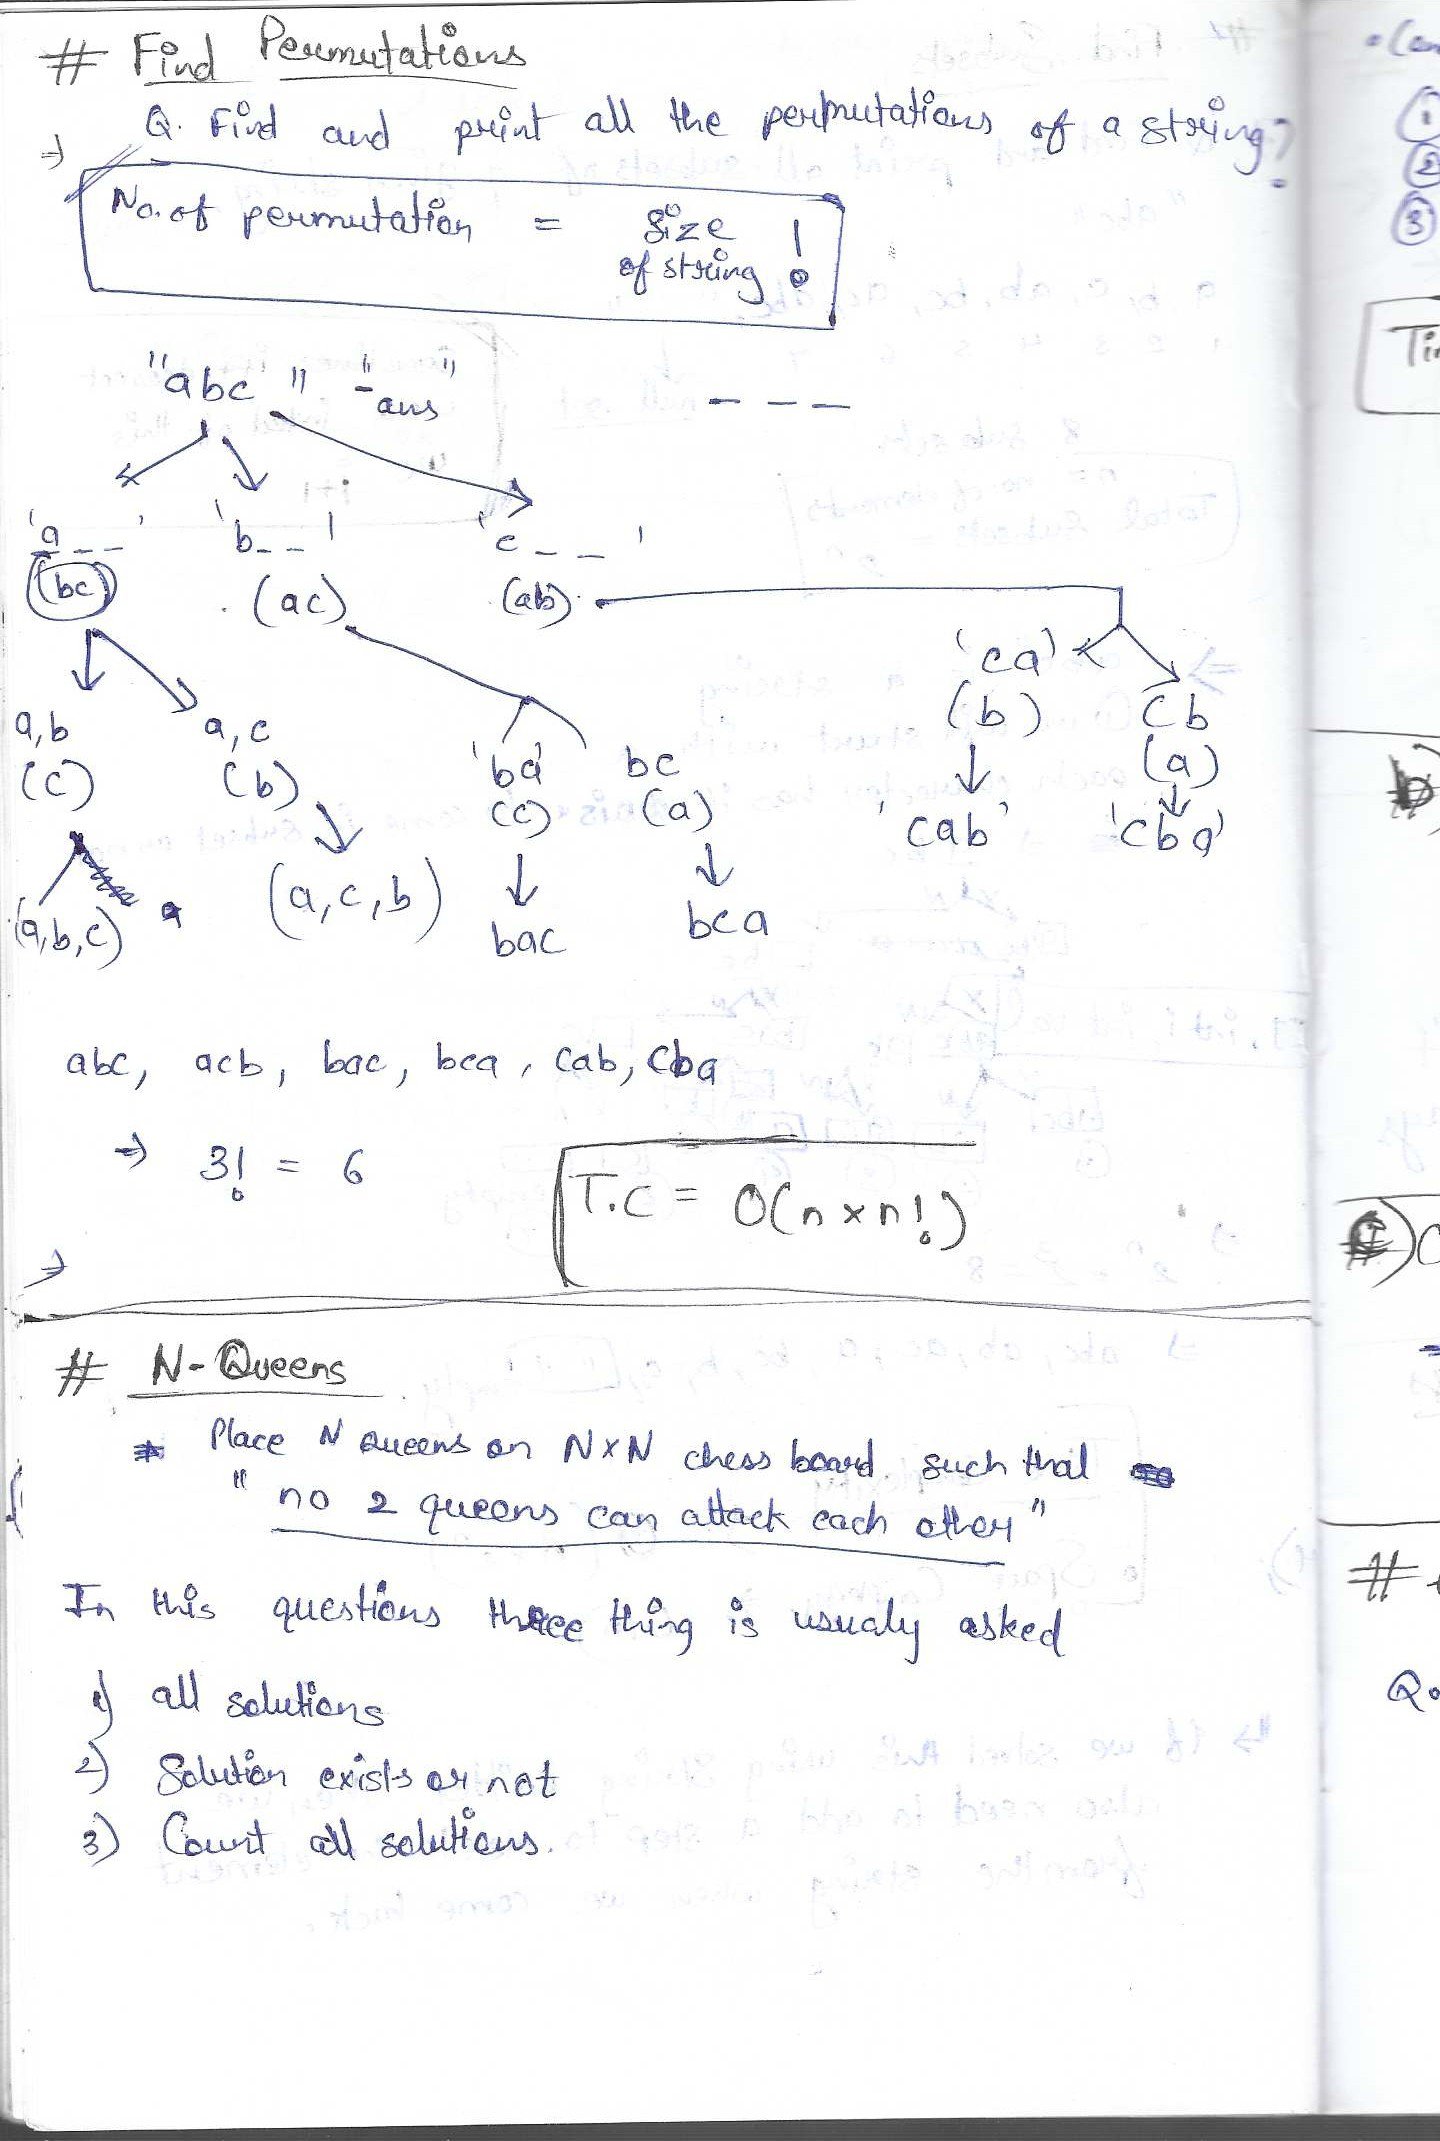 # Find Permutations
Q. Find and print all the permutations of a string?
⇒
No. of permutation = size of string !
"abc" "-" ans _ _ _
'a _ _' 'b _ _' 'c _ _'
(bc) (ac) (ab)
a,b a,c 'ba' bc 'ca' cb
(c) (b) (c) (a) (b) (a)
(a,b,c) (a,c,b) bac bca 'cab' 'cba'
abc, acb, bac, bca, cab, cba
⇒ 3! = 6
T.C = O(n×n!)
⇒
# N-Queens
* Place N queens on N×N chess board such that
"no 2 queens can attack each other"
In this questions three thing is usualy asked
1) all solutions
2) Solution exists or not
3) Count all solutions.
1
2
3
#
Q.